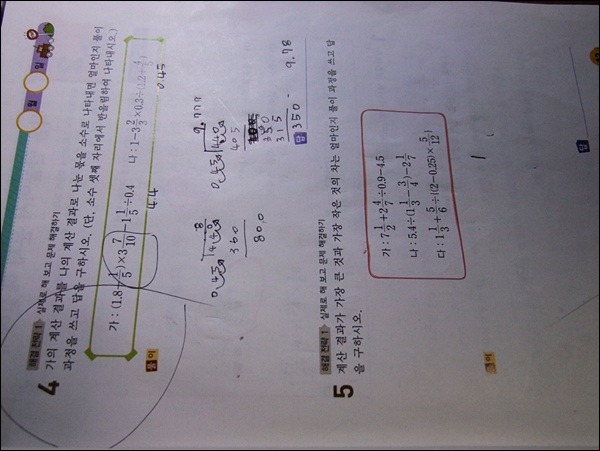 월 일
4 해결 전략 1 실제로 해 보고 문제 해결하기
가의 계산 결과를 나의 계산 결과로 나눈 몫을 소수로 나타내면 얼마인지 풀이
과정을 쓰고 답을 구하시오. (단, 소수 셋째 자리에서 반올림하여 나타내시오.)
가 : (1.8+1/5)×3 7/10-1 1/5÷0.4 나 : 1-3 2/3×0.3÷(1.2+4/5)
4.4 0.45
풀이
0.45 4.40
360
800
0.45 4.40
405
350
315
350
답 9.78
5 해결 전략 1 실제로 해 보고 문제 해결하기
계산 결과가 가장 큰 것과 가장 작은 것의 차는 얼마인지 풀이 과정을 쓰고 답
을 구하시오.
가 : 7 1/2+2 4/7÷0.9-4.5
나 : 5.4÷(1 1/4-3/4)-2 1/7
다 : 1 1/3+5/6÷{(2-0.25)×5/12}
풀이
답